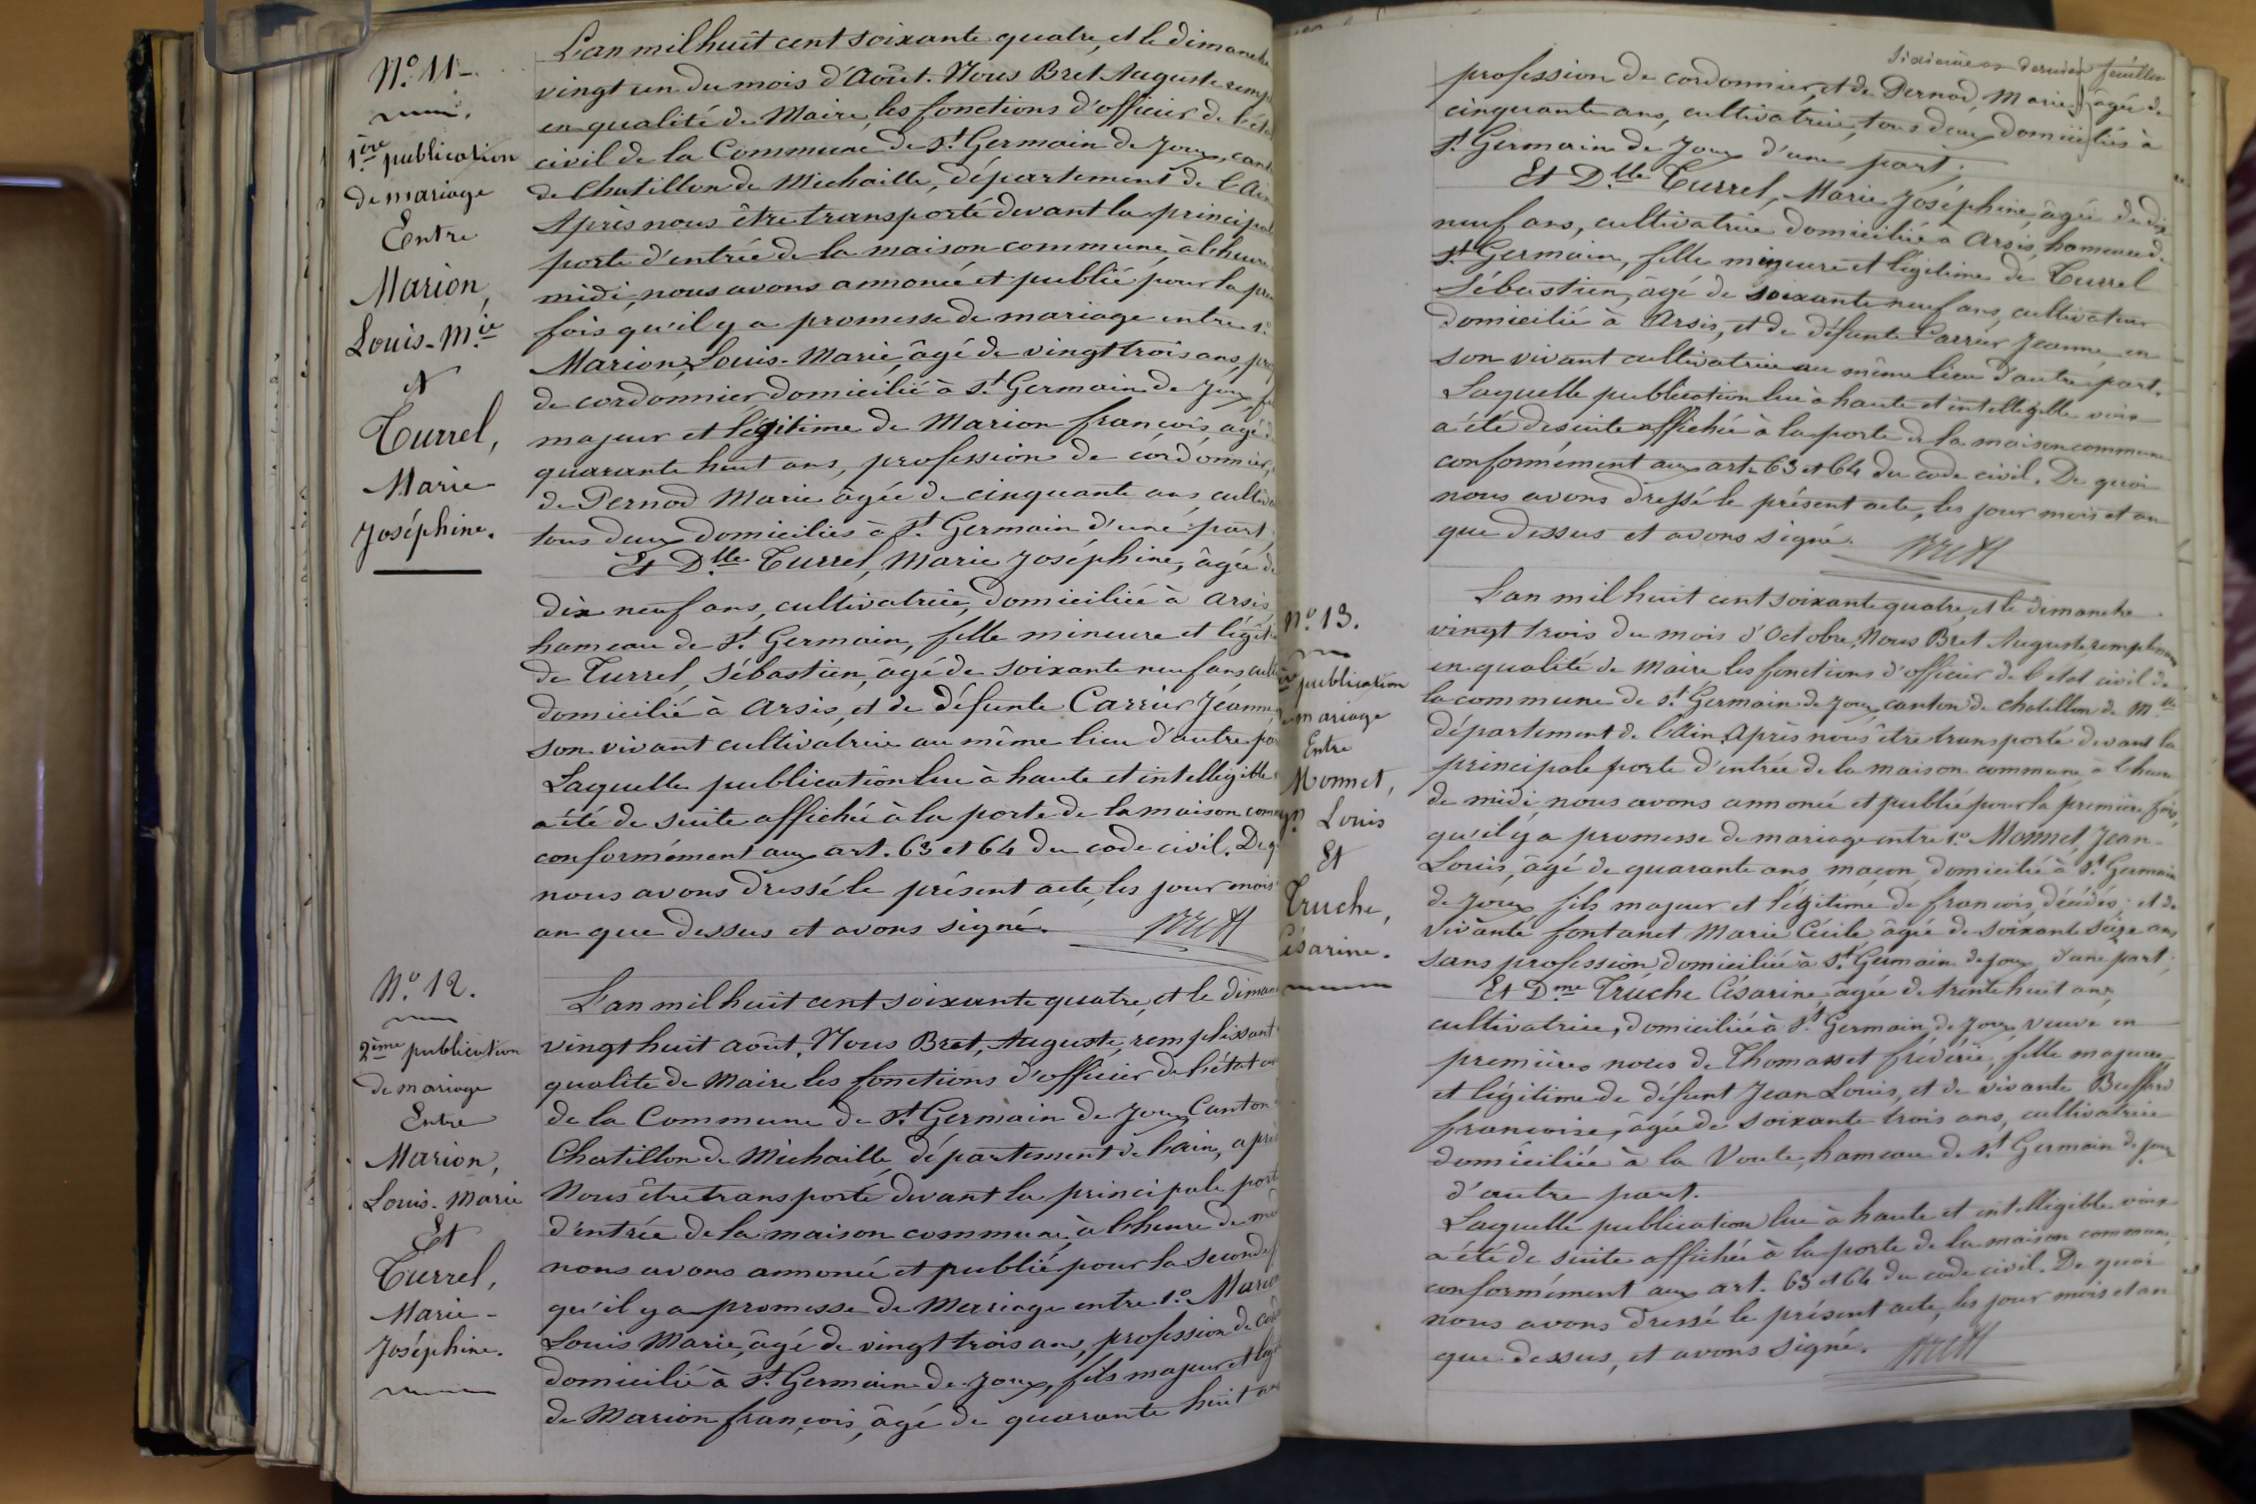 N.° 11
1ère publication
de mariage
Entre
Marion,
Louis-Mie
et
Turrel,
Marie
Joséphine.
L'an mil huit cent soixante quatre, et le dimanche
vingt un du mois d'Août. Nous Bret Auguste
en qualité de Maire, les fonctions d'officier de
civil de la Commune de St Germain de Joux,
de Chatillon de Michaille, département de l'Ain
Après nous être transporté devant la
porte d'entrée de la maison commune, à l'heure
midi, nous avons annoncé et publié pour la
fois qu'il y a promesse de mariage entre 1°
Marion, Louis-Marie, âgé de vingt trois ans,
de cordonnier domicilié à St Germain de Joux,
majeur et légitime de Marion françois, âgé
quarante huit ans, profession de cordonnier,
de Pernod Marie âgée de cinquante ans,
tous deux domiciliés à St Germain d'une part;
Et Dlle Turrel, Marie Joséphine, âgée de
dix neuf ans, cultivatrice, domiciliée à Arsis,
hameau de St Germain, fille mineure et
de Turrel, Sébastien, âgé de soixante neuf ans,
domicilié à Arsis, et de défunte Carrier Jeanne,
son vivant cultivatrice au même lieu d'autre
Laquelle publication lue à haute et intelligible
a été de suite affichée à la porte de la maison
conformément aux art. 63 et 64 du code civil. De
nous avons dressé le présent acte, les jour mois
an que dessus et avons signé. Bret
N.° 12.
2ème publication
de mariage
Entre
Marion,
Louis-Marie
Et
Turrel,
Marie-
Joséphine.
L'an mil huit cent soixante quatre, et le
vingt huit août, Nous Bret, Auguste, remplissant
qualité de Maire les fonctions d'officier de l'état
de la Commune de St Germain de Joux, Canton
Chatillon de Michaille département de l'ain,
Nous être transporté devant la principale
d'entrée de la maison commune, à l'heure de
nous avons annoncé et publié pour la seconde
qu'il y a promesse de Mariage entre 1° Marion
Louis Marie, âgé de vingt trois ans, profession de
domicilié à St Germain de Joux, fils majeur et
de Marion françois, âgé de quarante huit ans
Sixième et dernier feuillet
profession de cordonnier, et de Pernod, Marie, âgée de
cinquante ans, cultivatrice, tous deux domiciliés à
St Germain de Joux d'une part;
Et Dlle Turrel, Marie Joséphine, âgée de dix
neuf ans, cultivatrice domiciliée à Arsis, hameau de
St Germain, fille mineure et légitime de Turrel
Sébastien, âgé de soixante neuf ans, cultivateur
domicilié à Arsis, et de défunte Carrier Jeanne, en
son vivant cultivatrice au même lieu d'autre part.
Laquelle publication lue à haute et intelligible voix
a été de suite affichée à la porte de la maison commune
conformément aux art. 63 et 64 du code civil. De quoi
nous avons dressé le présent acte, les jour mois et an
que dessus et avons signé. Bret
N.° 13.
publication
mariage
Entre
Monnet,
Louis
Et
Truche,
Césarine.
L'an mil huit cent soixante quatre, et le dimanche
vingt trois du mois d'Octobre, Nous Bret Auguste remplissant
en qualité de Maire les fonctions d'officier de l'état civil de
la commune de St Germain de Joux, canton de chatillon de Mlle
département de l'Ain, Après nous être transporté devant la
principale porte d'entrée de la maison commune, à l'heure
de midi nous avons annoncé et publié pour la première fois,
qu'il y a promesse de mariage entre 1° Monnet, Jean-
Louis, âgé de quarante ans, maçon, domicilié à St Germain
de Joux, fils majeur et légitime de françois, décédé; et de
vivante fontanet Marie Cécile âgée de soixante seize ans
sans profession domiciliée à St Germain de joux, d'une part;
Et Dme Truche Césarine, âgée de trente huit ans,
cultivatrice, domiciliée à St Germain de Joux, veuve en
premières noces de Thomasset frédéric, fille majeure
et légitime de défunt Jean Louis, et de vivante Buffard
francoise, âgée de soixante trois ans, cultivatrice
domiciliée à la Voute, hameau de St Germain de joux
d'autre part.
Laquelle publication lue à haute et intelligible voix
a été de suite affichée à la porte de la maison commune,
conformément aux art. 63 et 64 du code civil. De quoi
nous avons dressé le présent acte, les jour mois et an
que dessus, et avons signé. Bret